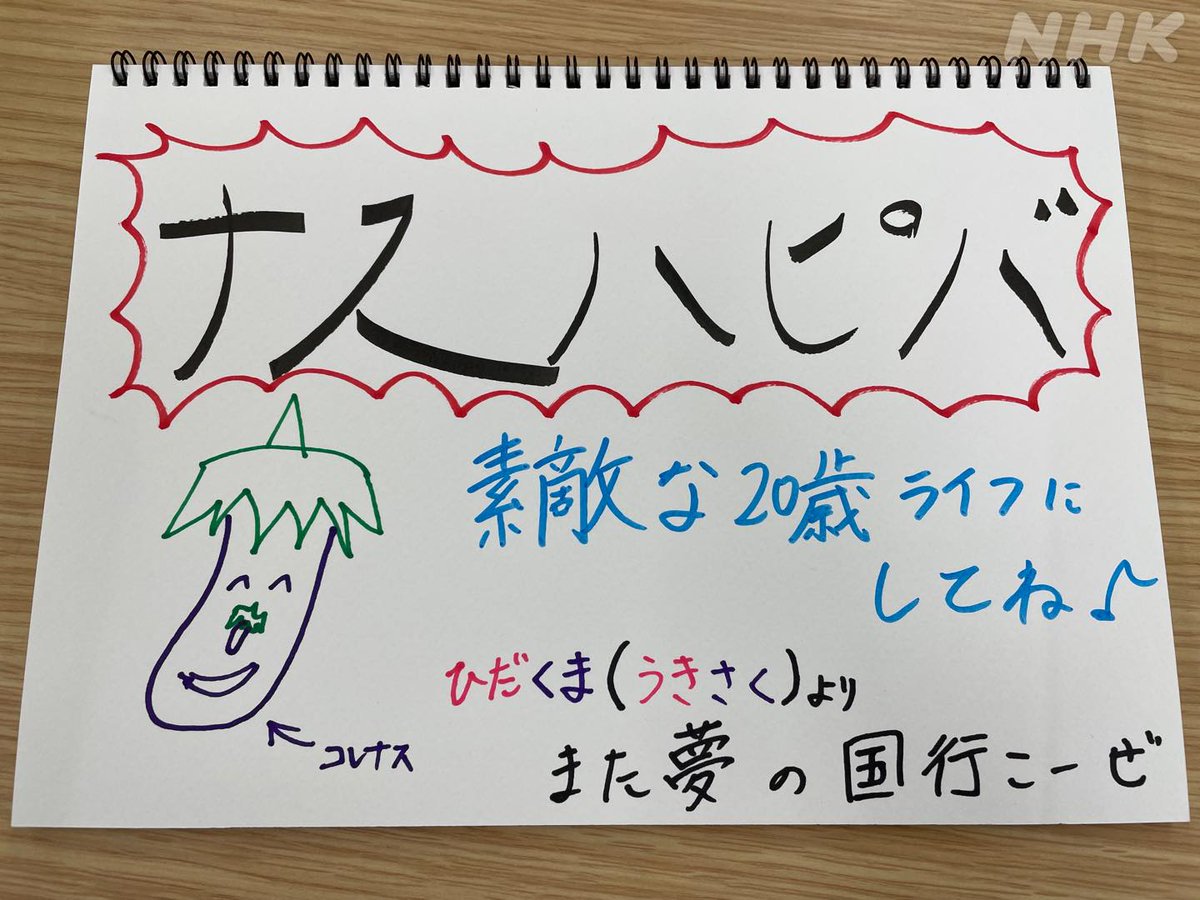 NHK
ナスハピバ
素敵な20歳ライフに
してね♪
ひだくま(うきさく)より
また夢の国行こーぜ
コレナス